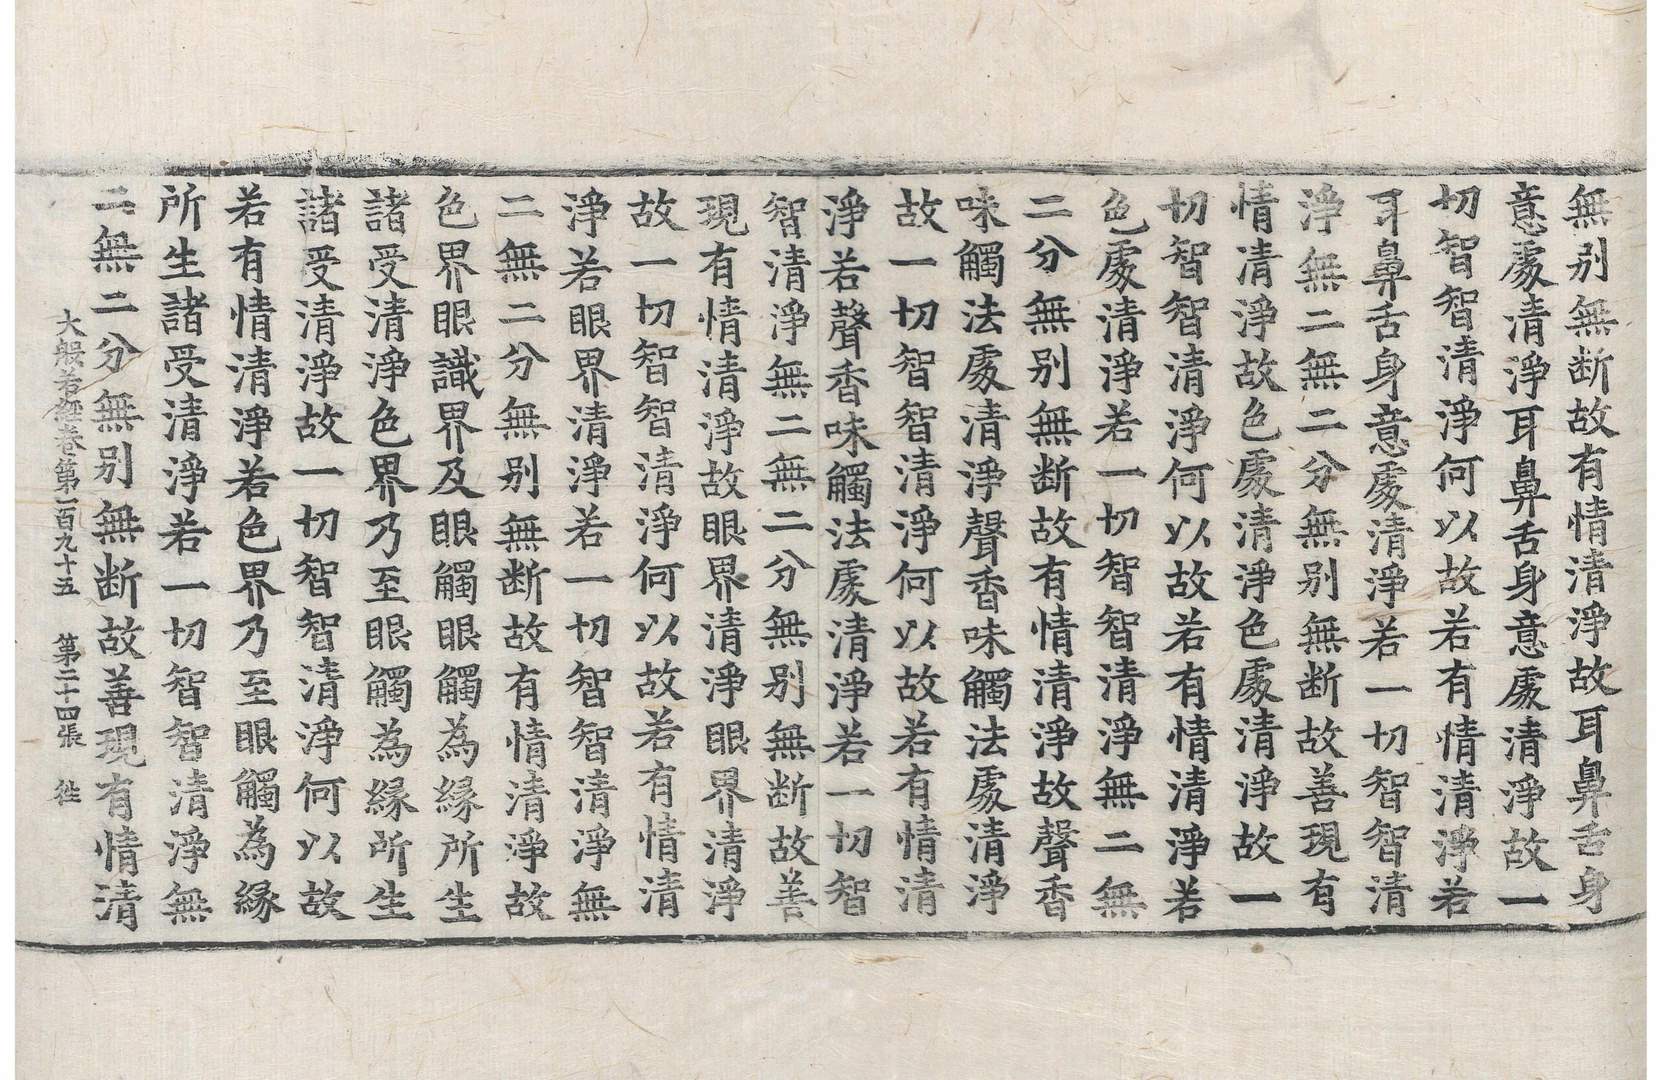 無別無断故有情清淨故耳鼻舌身
意處清淨耳鼻舌身意處清淨故一
切智智清淨何以故若有情清淨若
耳鼻舌身意處清淨若一切智智清
淨無二無二分無別無断故善現有
情清淨故色處清淨色處清淨故一
切智智清淨何以故若有情清淨若
色處清淨若一切智智清淨無二無
二分無別無断故有情清淨故聲香
味觸法處清淨聲香味觸法處清淨
故一切智智清淨何以故若有情清
淨若聲香味觸法處清淨若一切智
智清淨無二無二分無別無断故善
現有情清淨故眼界清淨眼界清淨
故一切智智清淨何以故若有情清
淨若眼界清淨若一切智智清淨無
二無二分無別無断故有情清淨故
色界眼識界及眼觸眼觸為緣所生
諸受清淨色界乃至眼觸為緣所生
諸受清淨故一切智智清淨何以故
若有情清淨若色界乃至眼觸為緣
所生諸受清淨若一切智智清淨無
二無二分無別無断故善現有情清
大般若經卷第一百九十五 第二十四張